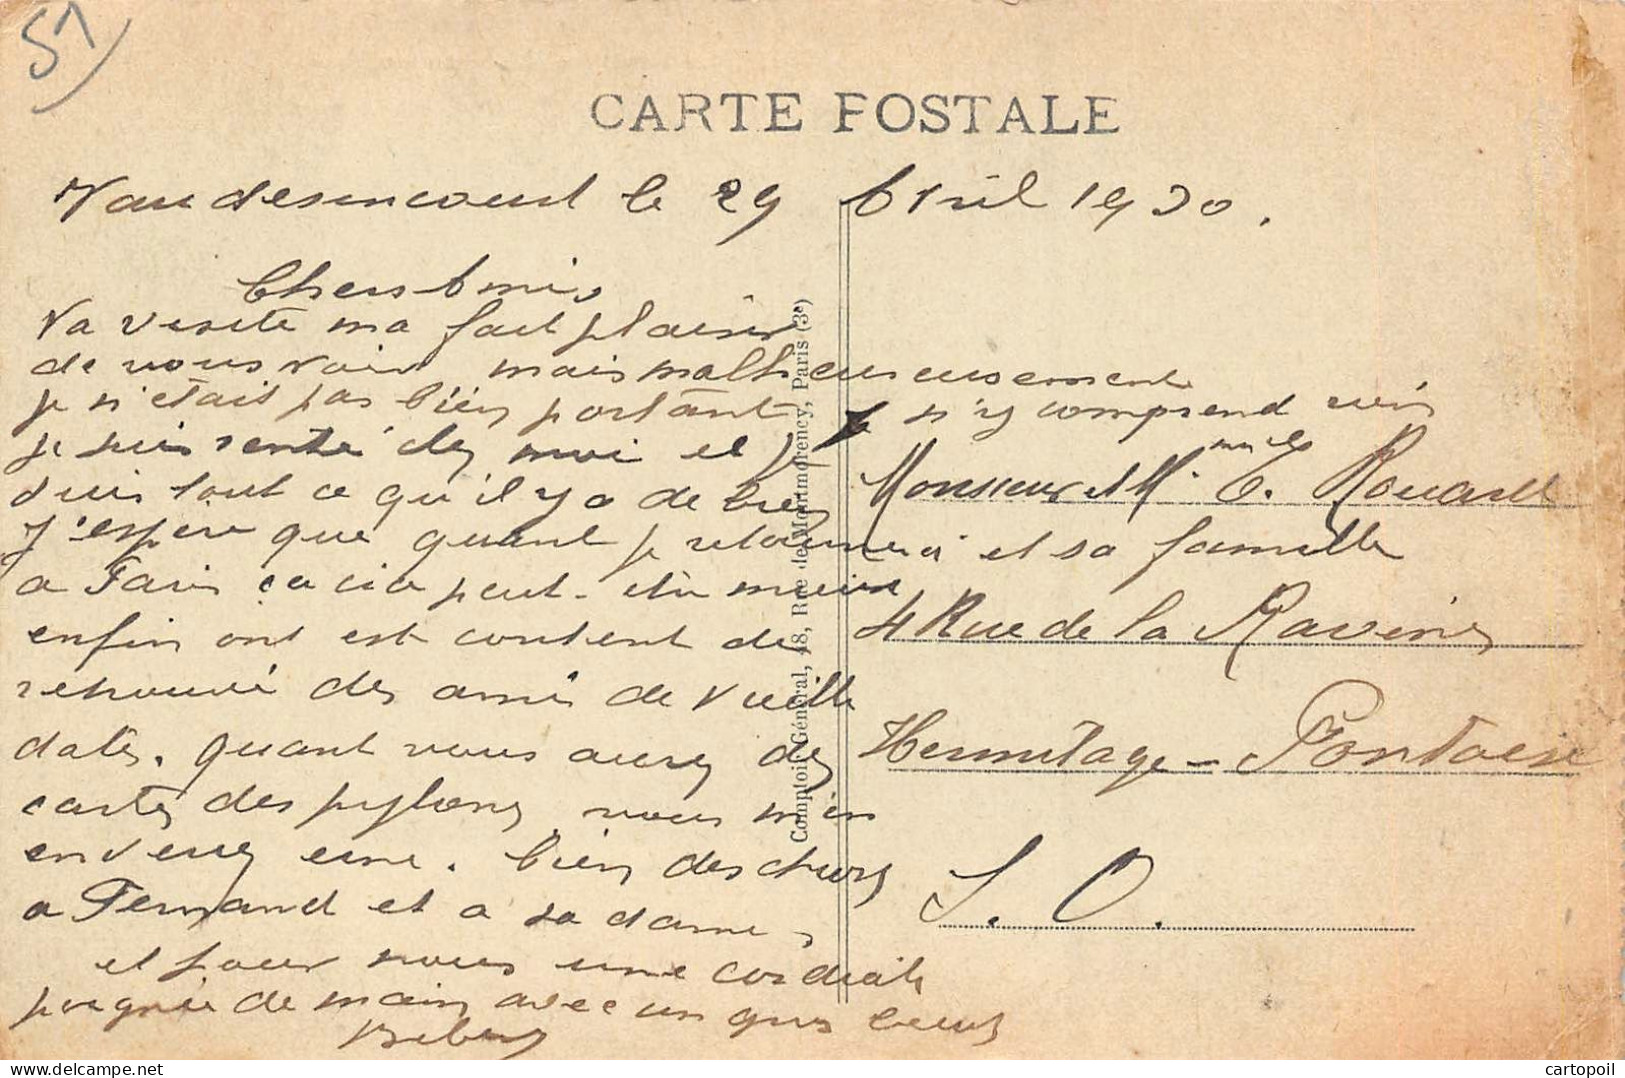 51
CARTE POSTALE
Vaudesincourt le 29 Avril 1930.
Chers Amis,
Va visite ma fait plaisir
de vous voir mais malheureusement
je n'était pas bien portant je n'y comprend rien
je suis rentré chez moi et je
suis tout ce qu'il y a de bien
J'espère que quant je retournerai
a Paris ça cera peut-être mieux
enfin ont est content de
retrouvé des amis de vieille
date. quant vous aurez des
cartes des pylones vous m'en
enverez une. bien des choses
a Fernand et a sa dame,
et pour vous une cordiale
poignée de main avec un gros
Comptoir Général, 48, Rue de Montmorency, Paris (3e)
Monsieur et Mme E. Rouard
et sa famille
4 Rue de la Ravine
Hermitage - Pontoise
S. O.
delcampe.net
cartopoil